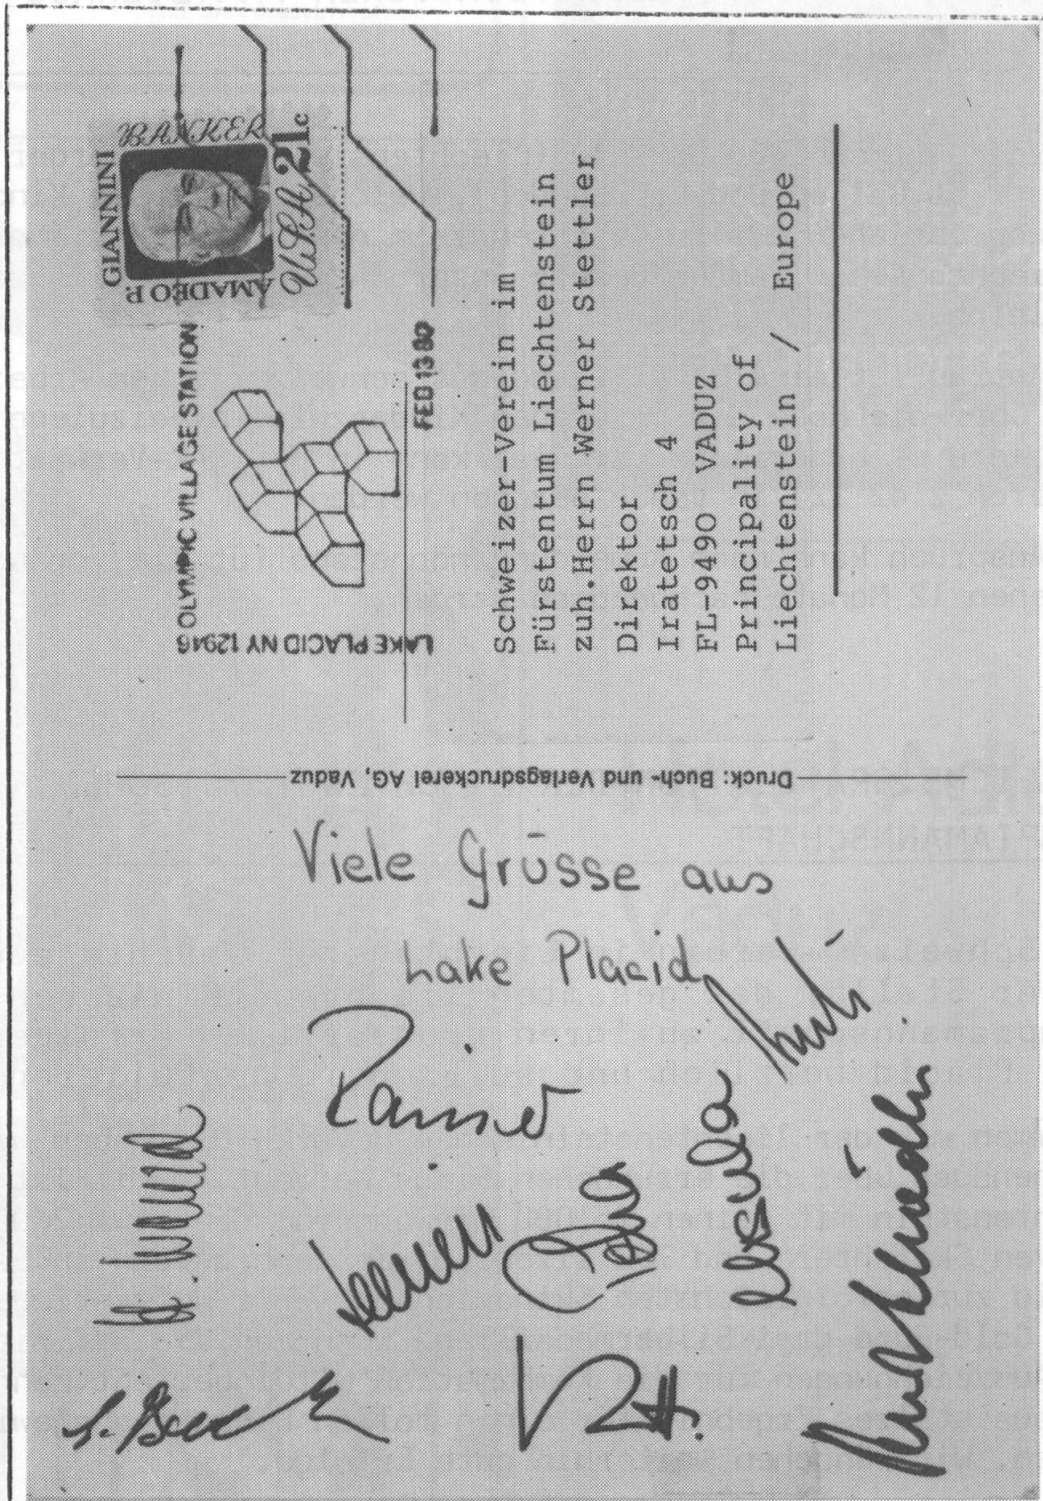 AMADEO P.
GIANNINI
BANKER
U.S.A. 21c
OLYMPIC VILLAGE STATION
LAKE PLACID NY 12946
FEB 13 80
Schweizer-Verein im
Fürstentum Liechtenstein
zuh.Herrn Werner Stettler
Direktor
Iratetsch 4
FL-9490 VADUZ
Principality of
Liechtenstein / Europe
Druck: Buch- und Verlagsdruckerei AG, Vaduz
Viele Grüsse aus
Lake Placid
Rainer
Petra
Ursula